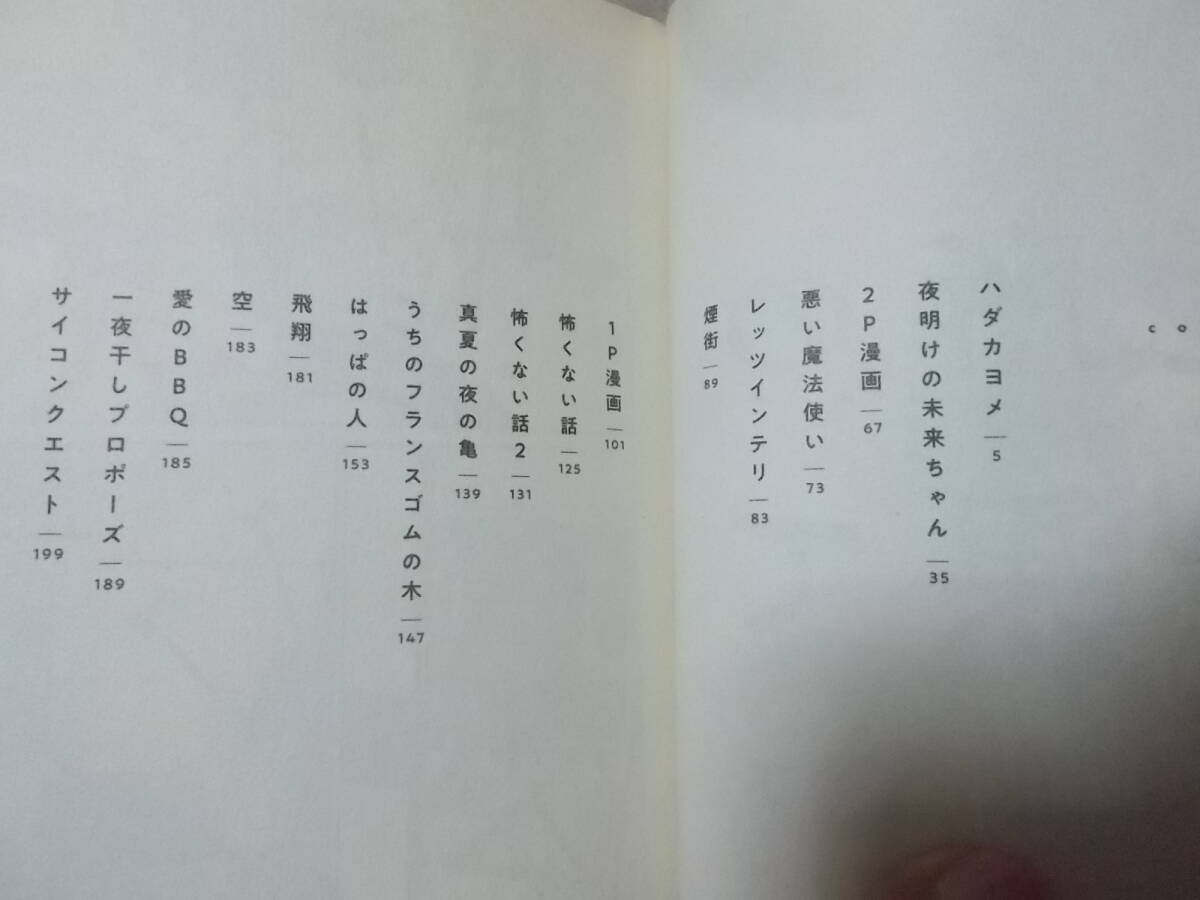 co
ハダカヨメ—5
夜明けの未来ちゃん—35
2P漫画—67
悪い魔法使い—73
レッツインテリ—83
煙街—89
1P漫画—101
怖くない話—125
怖くない話2—131
真夏の夜の亀—139
うちのフランスゴムの木—147
はっぱの人—153
飛翔—181
空—183
愛のBBQ—185
一夜干しプロポーズ—189
サイコンクエスト—199